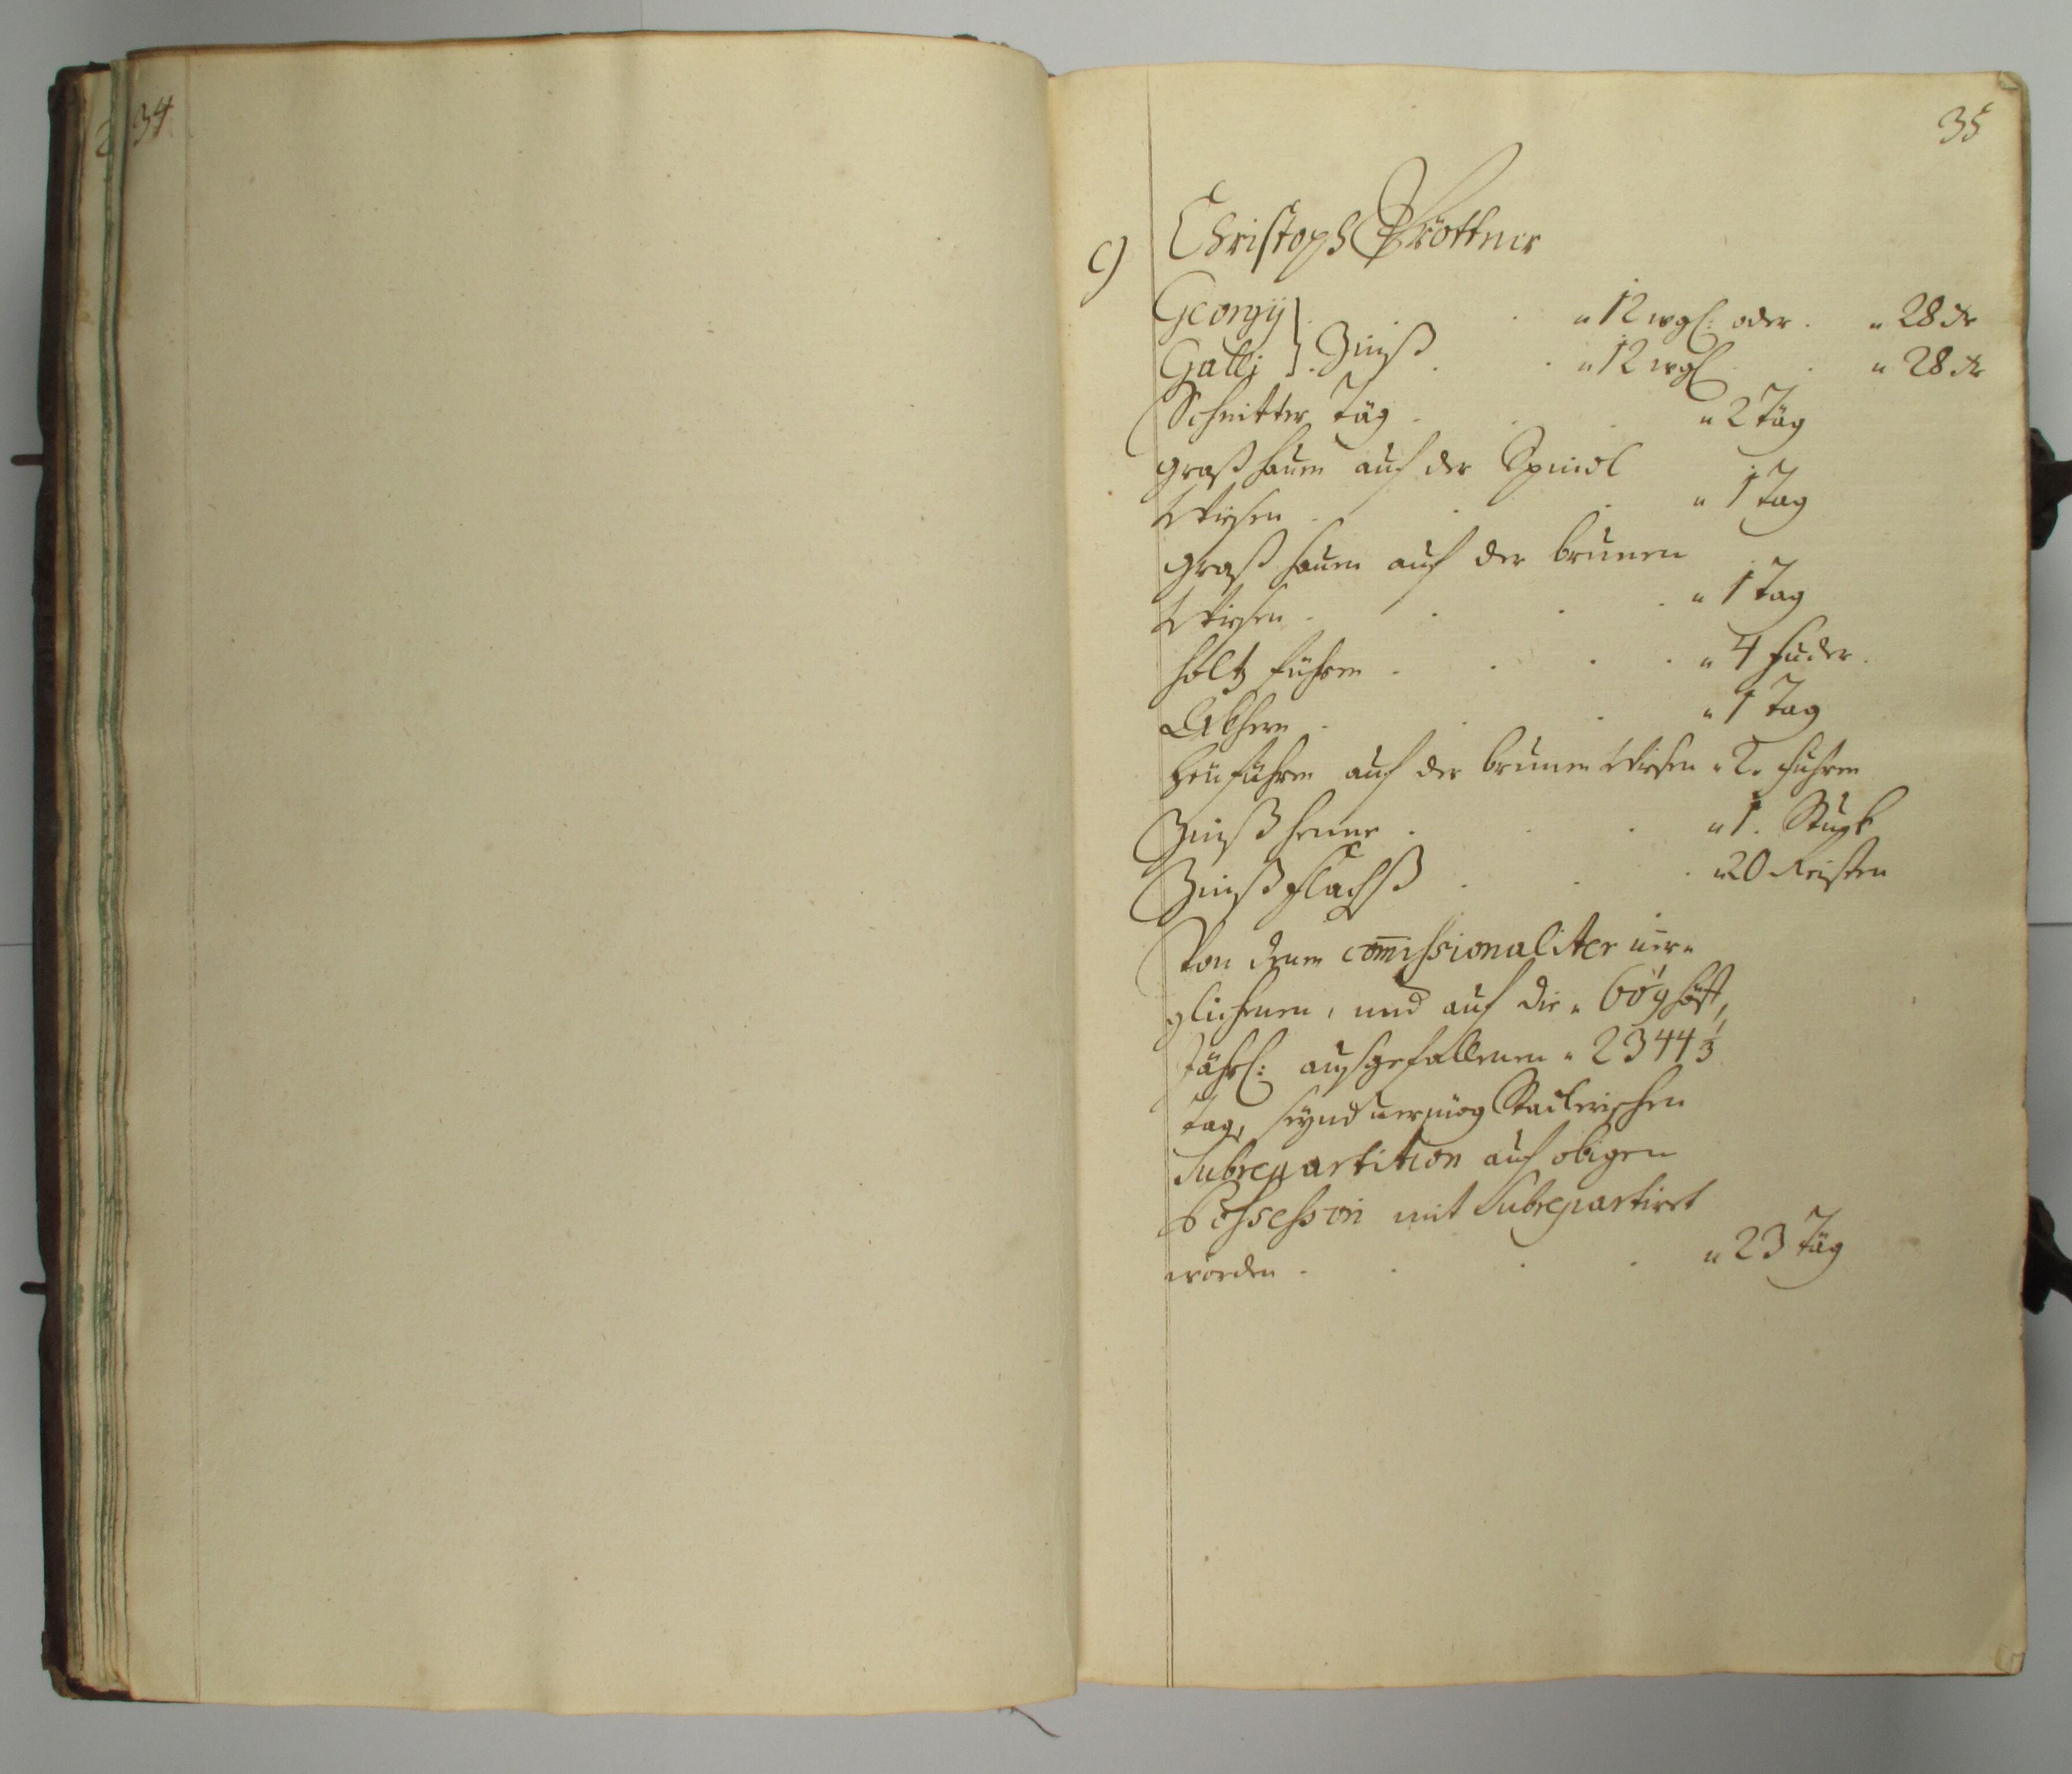 34
35
9) Christoph Pröttner
Georgÿ } . . „ 12 wgl: oder . „ 28 xr
Galli } . Zinß . . „ 12 wgl . . „ 28 xr
Schnitter Täg . . . „ 2 Täg
graß hauen auf der Spindl
Wiesen . . . „ 1 Tag
graß hauen auf der brunen
Wiesen . . . . „ 1 Tag
holtz führen . . . . „ 4 fuder .
Akhern . . . „ 1 Tag
Heu führen auf der brunen Wiesen „ 2. fuhren
Zinß henne . . . „ 1. Stugk
Zinß flachß . . . „ 20 Reisten
Von denen com̄issionaliter ver„
glichenen, und auf die „ 60 g
Jährl: ausgefallenen „ 2344 1/3
Tag, seynd vermög
Subrepartition auf obigen
Possesson mit Subrepartirt
worden . . . . „ 23 Täg